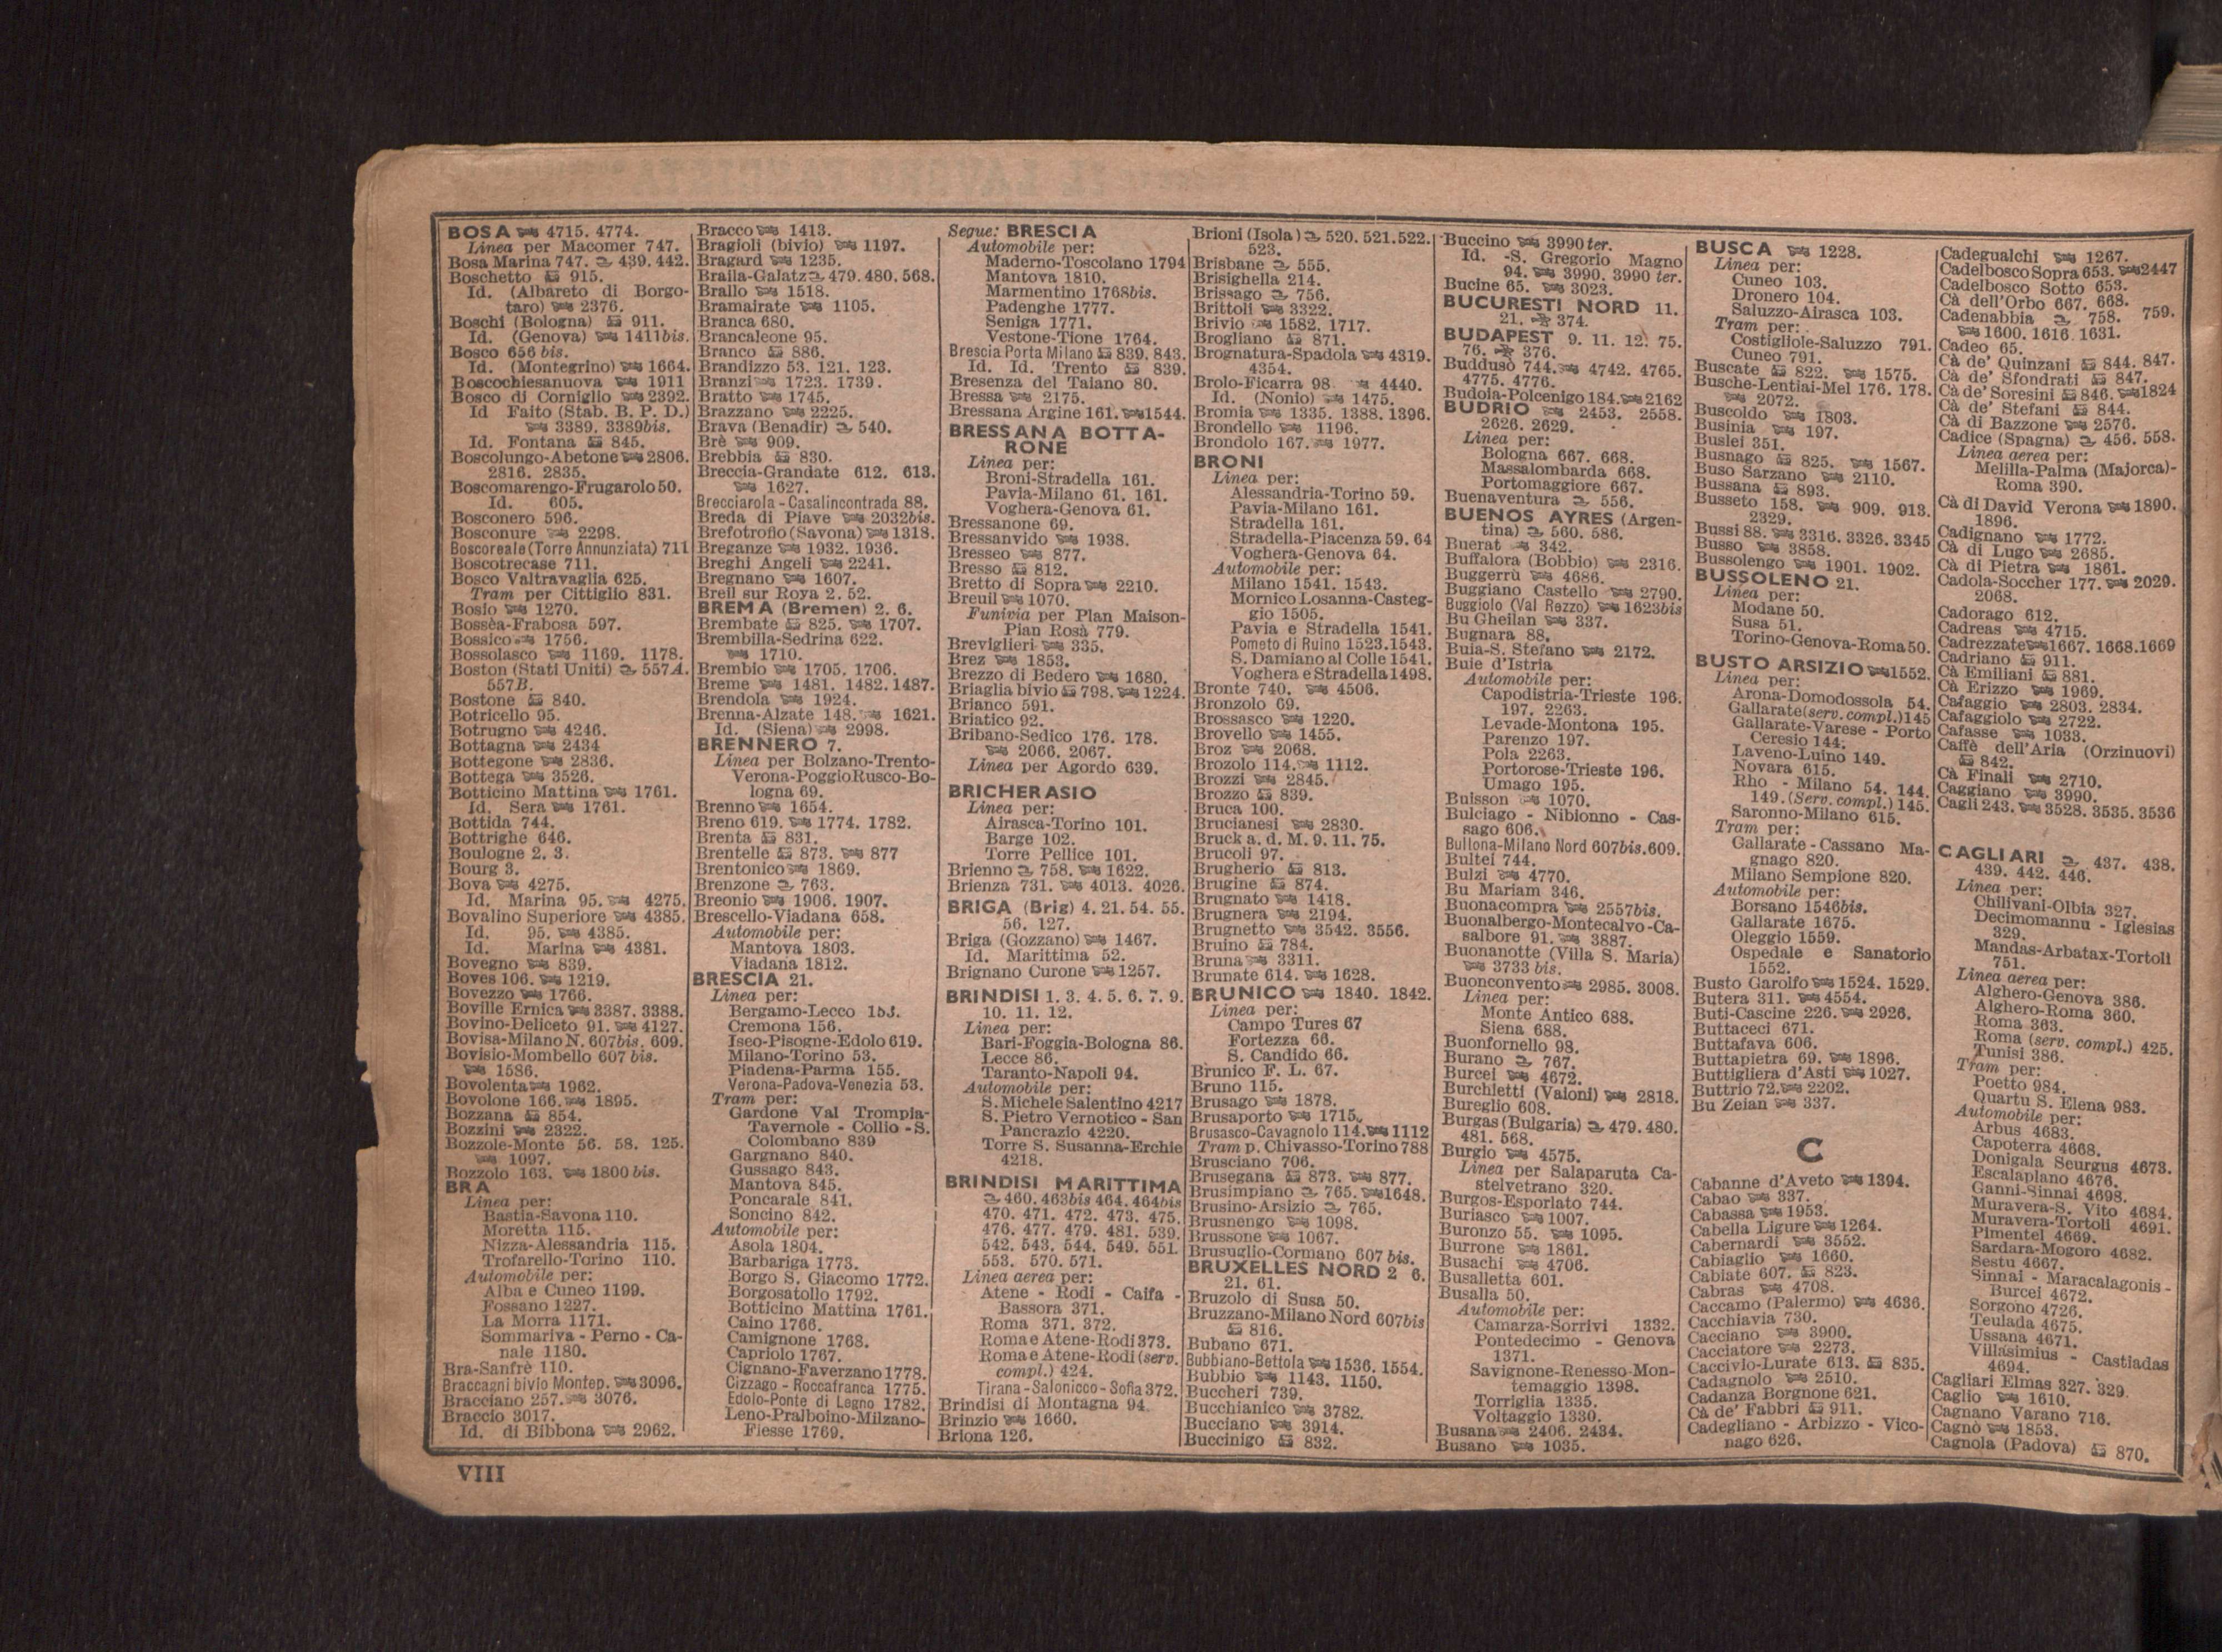 BOSA 4715. 4774.
Linea per Macomer 747.
Bosa Marina 747. 439. 442.
Boschetto 915.
Id. (Albareto di Borgo-
taro) 2376.
Boschi (Bologna) 911.
Id. (Genova) 1411bis.
Bosco 656 bis.
Id. (Montegrino) 1664.
Boscochiesanuova 1911
Bosco di Corniglio 2392.
Id Faito (Stab. B. P. D.)
3389. 3389bis.
Id. Fontana 845.
Boscolungo-Abetone 2806.
2816. 2835.
Boscomarengo-Frugarolo 50.
Id. 605.
Bosconero 596.
Bosconure 2298.
Boscoreale (Torre Annunziata) 711
Boscotrecase 711.
Bosco Valtravaglia 625.
Tram per Cittiglio 831.
Bosio 1270.
Bossèa-Frabosa 597.
Bossico 1756.
Bossolasco 1169. 1178.
Boston (Stati Uniti) 557A.
557B.
Bostone 840.
Botricello 95.
Botrugno 4246.
Bottagna 2434
Bottegone 2836.
Bottega 3526.
Botticino Mattina 1761.
Id. Sera 1761.
Bottida 744.
Bottrighe 646.
Boulogne 2. 3.
Bourg 3.
Bova 4275.
Id. Marina 95. 4275.
Bovalino Superiore 4385.
Id. 95. 4385.
Id. Marina 4381.
Bovegno 839.
Boves 106. 1219.
Bovezzo 1766.
Boville Ernica 3387. 3388.
Bovino-Deliceto 91. 4127.
Bovisa-Milano N. 607bis. 609.
Bovisio-Mombello 607 bis.
1586.
Bovolenta 1962.
Bovolone 166. 1895.
Bozzana 854.
Bozzini 2322.
Bozzole-Monte 56. 58. 125.
1097.
Bozzolo 163. 1800 bis.
BRA
Linea per:
Bastia-Savona 110.
Moretta 115.
Nizza-Alessandria 115.
Trofarello-Torino 110.
Automobile per:
Alba e Cuneo 1199.
Fossano 1227.
La Morra 1171.
Sommariva - Perno - Ca-
nale 1180.
Bra-Sanfrè 110.
Braccagni bivio Montep. 3096.
Bracciano 257. 3076.
Braccio 3017.
Id. di Bibbona 2962.
Bracco 1413.
Bragioli (bivio) 1197.
Bragard 1235.
Braila-Galatz 479. 480. 568.
Brallo 1518.
Bramairate 1105.
Branca 680.
Brancaleone 95.
Branco 886.
Brandizzo 53. 121. 123.
Branzi 1723. 1739.
Bratto 1745.
Brazzano 2225.
Brava (Benadir) 540.
Brè 909.
Brebbia 830.
Breccia-Grandate 612. 613.
1627.
Brecciarola - Casalincontrada 88.
Breda di Piave 2032bis.
Brefotrofio (Savona) 1318.
Breganze 1932. 1936.
Breghi Angeli 2241.
Bregnano 1607.
Breil sur Roya 2. 52.
BREMA (Bremen) 2. 6.
Brembate 825. 1707.
Brembilla-Sedrina 622.
1710.
Brembio 1705. 1706.
Breme 1481. 1482. 1487.
Brendola 1924.
Brenna-Alzate 148. 1621.
Id. (Siena) 2998.
BRENNERO 7.
Linea per Bolzano-Trento-
Verona-Poggio Rusco-Bo-
logna 69.
Brenno 1654.
Breno 619. 1774. 1782.
Brenta 831.
Brentelle 873. 877
Brentonico 1869.
Brenzone 763.
Breonio 1906. 1907.
Brescello-Viadana 658.
Automobile per:
Mantova 1803.
Viadana 1812.
BRESCIA 21.
Linea per:
Bergamo-Lecco 153.
Cremona 156.
Iseo-Pisogne-Edolo 619.
Milano-Torino 53.
Piadena-Parma 155.
Verona-Padova-Venezia 53.
Tram per:
Gardone Val Trompia-
Tavernole - Collio - S.
Colombano 839
Gargnano 840.
Gussago 843.
Mantova 845.
Poncarale 841.
Soncino 842.
Automobile per:
Asola 1804.
Barbariga 1773.
Borgo S. Giacomo 1772.
Borgosatollo 1792.
Botticino Mattina 1761.
Caino 1766.
Camignone 1768.
Capriolo 1767.
Cignano-Faverzano 1778.
Cizzago - Roccafranca 1775.
Edolo-Ponte di Legno 1782.
Leno-Pralboino-Milzano-
Fiesse 1769.
Segue: BRESCIA
Automobile per:
Maderno-Toscolano 1794
Mantova 1810.
Marmentino 1768bis.
Padenghe 1777.
Seniga 1771.
Vestone-Tione 1764.
Brescia Porta Milano 839. 843.
Id. Id. Trento 839.
Bresenza del Taiano 80.
Bressa 2175.
Bressana Argine 161. 1544.
BRESSANA BOTTA-
RONE
Linea per:
Broni-Stradella 161.
Pavia-Milano 61. 161.
Voghera-Genova 61.
Bressanone 69.
Bressanvido 1938.
Bresseo 877.
Bresso 812.
Bretto di Sopra 2210.
Breuil 1070.
Funivia per Plan Maison-
Pian Rosà 779.
Breviglieri 335.
Brez 1853.
Brezzo di Bedero 1680.
Briaglia bivio 798. 1224.
Brianco 591.
Briatico 92.
Bribano-Sedico 176. 178.
2066. 2067.
Linea per Agordo 639.
BRICHERASIO
Linea per:
Airasca-Torino 101.
Barge 102.
Torre Pellice 101.
Brienno 758. 1622.
Brienza 731. 4013. 4026.
BRIGA (Brig) 4. 21. 54. 55.
56. 127.
Briga (Gozzano) 1467.
Id. Marittima 52.
Brignano Curone 1257.
BRINDISI 1. 3. 4. 5. 6. 7. 9.
10. 11. 12.
Linea per:
Bari-Foggia-Bologna 86.
Lecce 86.
Taranto-Napoli 94.
Automobile per:
S. Michele Salentino 4217
S. Pietro Vernotico - San
Pancrazio 4220.
Torre S. Susanna-Erchie
4218.
BRINDISI MARITTIMA
460. 463bis 464. 464bis
470. 471. 472. 473. 475.
476. 477. 479. 481. 539.
542. 543. 544. 549. 551.
553. 570. 571.
Linea aerea per:
Atene - Rodi - Caifa -
Bassora 371.
Roma 371. 372.
Roma e Atene-Rodi 373.
Roma e Atene-Rodi (serv.
compl.) 424.
Tirana - Salonicco - Sofia 372.
Brindisi di Montagna 94.
Brinzio 1660.
Briona 126.
Brioni (Isola) 520. 521. 522.
523.
Brisbane 555.
Brisighella 214.
Brissago 756.
Brittoli 3322.
Brivio 1582. 1717.
Brogliano 871.
Brognatura-Spadola 4319.
4354.
Brolo-Ficarra 98 4440.
Id. (Nonio) 1475.
Bromia 1335. 1388. 1396.
Brondello 1196.
Brondolo 167. 1977.
BRONI
Linea per:
Alessandria-Torino 59.
Pavia-Milano 161.
Stradella 161.
Stradella-Piacenza 59. 64
Voghera-Genova 64.
Automobile per:
Milano 1541. 1543.
Mornico Losanna-Casteg-
gio 1505.
Pavia e Stradella 1541.
Pometo di Ruino 1523. 1543.
S. Damiano al Colle 1541.
Voghera e Stradella 1498.
Bronte 740. 4506.
Bronzolo 69.
Brossasco 1220.
Brovello 1455.
Broz 2068.
Brozolo 114. 1112.
Brozzi 2845.
Brozzo 839.
Bruca 100.
Brucianesi 2830.
Bruck a. d. M. 9. 11. 75.
Brucoli 97.
Brugherio 813.
Brugine 874.
Brugnato 1418.
Brugnera 2194.
Brugnetto 3542. 3556.
Bruino 784.
Bruna 3311.
Brunate 614. 1628.
BRUNICO 1840. 1842.
Linea per:
Campo Tures 67
Fortezza 66.
S. Candido 66.
Brunico F. L. 67.
Bruno 115.
Brusago 1878.
Brusaporto 1715.
Brusasco-Cavagnolo 114. 1112
Tram p. Chivasso-Torino 788
Brusciano 706.
Brusegana 873. 877.
Brusimpiano 765. 1648.
Brusino-Arsizio 765.
Brusnengo 1098.
Brussone 1067.
Brusuglio-Cormano 607 bis.
BRUXELLES NORD 2 6.
21. 61.
Bruzolo di Susa 50.
Bruzzano-Milano Nord 607bis
816.
Bubano 671.
Bubbiano-Bettola 1536. 1554.
Bubbio 1143. 1150.
Buccheri 739.
Bucchianico 3782.
Bucciano 3914.
Buccinigo 832.
Buccino 3990 ter.
Id. -S. Gregorio Magno
94. 3990. 3990 ter.
Bucine 65. 3023.
BUCURESTI NORD 11.
21. 374.
BUDAPEST 9. 11. 12. 75.
76. 376.
Buddusò 744. 4742. 4765.
4775. 4776.
Budoia-Polcenigo 184. 2162
BUDRIO 2453. 2558.
2626. 2629.
Linea per:
Bologna 667. 668.
Massalombarda 668.
Portomaggiore 667.
Buenaventura 556.
BUENOS AYRES (Argen-
tina) 560. 586.
Buerat 342.
Buffalora (Bobbio) 2316.
Buggerrù 4686.
Buggiano Castello 2790.
Buggiolo (Val Rezzo) 1623bis
Bu Gheilan 337.
Bugnara 88.
Buia-S. Stefano 2172.
Buie d'Istria
Automobile per:
Capodistria-Trieste 196.
197. 2263.
Levade-Montona 195.
Parenzo 197.
Pola 2263.
Portorose-Trieste 196.
Umago 195.
Buisson 1070.
Bulciago - Nibionno - Cas-
sago 606.
Bullona-Milano Nord 607bis. 609.
Bultei 744.
Bulzi 4770.
Bu Mariam 346.
Buonacompra 2557bis.
Buonalbergo-Montecalvo-Ca-
salbore 91. 3887.
Buonanotte (Villa S. Maria)
3733 bis.
Buonconvento 2985. 3008.
Linea per:
Monte Antico 688.
Siena 688.
Buonfornello 98.
Burano 767.
Burcei 4672.
Burchietti (Vaioni) 2818.
Bureglio 608.
Burgas (Bulgaria) 479. 480.
481. 568.
Burgio 4575.
Linea per Salaparuta Ca-
stelvetrano 320.
Burgos-Esporlato 744.
Buriasco 1007.
Buronzo 55. 1095.
Burrone 1861.
Busachi 4706.
Busalletta 601.
Busalla 50.
Automobile per:
Camarza-Sorrivi 1332.
Pontedecimo - Genova
1371.
Savignone-Renesso-Mon-
temaggio 1398.
Torriglia 1335.
Voltaggio 1330.
Busana 2406. 2434.
Busano 1035.
BUSCA 1228.
Linea per:
Cuneo 103.
Dronero 104.
Saluzzo-Airasca 103.
Tram per:
Costigliole-Saluzzo 791.
Cuneo 791.
Buscate 822. 1575.
Busche-Lentiai-Mel 176. 178.
2072.
Buscoldo 1803.
Businia 197.
Buslei 351.
Busnago 825. 1567.
Buso Sarzano 2110.
Bussana 893.
Busseto 158. 909. 913.
2329.
Bussi 88. 3316. 3326. 3345
Busso 3858.
Bussolengo 1901. 1902.
BUSSOLENO 21.
Linea per:
Modane 50.
Susa 51.
Torino-Genova-Roma 50.
BUSTO ARSIZIO 1552.
Linea per:
Arona-Domodossola 54.
Gallarate (serv. compl.) 145
Gallarate-Varese - Porto
Ceresio 144.
Laveno-Luino 149.
Novara 615.
Rho - Milano 54. 144.
149. (Serv. compl.) 145.
Saronno-Milano 615.
Tram per:
Gallarate - Cassano Ma-
gnago 820.
Milano Sempione 820.
Automobile per:
Borsano 1546bis.
Gallarate 1675.
Oleggio 1559.
Ospedale e Sanatorio
1552.
Busto Garolfo 1524. 1529.
Butera 311. 4554.
Buti-Cascine 226. 2926.
Buttaceci 671.
Buttafava 606.
Buttapietra 69. 1896.
Buttigliera d'Asti 1027.
Buttrio 72. 2202.
Bu Zeian 337.
C
Cabanne d'Aveto 1394.
Cabao 337.
Cabassa 1953.
Cabella Ligure 1264.
Cabernardi 3552.
Cabiaglio 1660.
Cabiate 607. 823.
Cabras 4708.
Caccamo (Palermo) 4636.
Cacchiavia 730.
Cacciano 3900.
Cacciatore 2273.
Caccivio-Lurate 613. 835.
Cadagnolo 2510.
Cadanza Borgnone 621.
Cà de' Fabbri 911.
Cadegliano - Arbizzo - Vico-
nago 626.
Cadegualchi 1267.
Cadelbosco Sopra 653. 2447
Cadelbosco Sotto 653.
Cà dell'Orbo 667. 668.
Cadenabbia 758. 759.
1600. 1616. 1631.
Cadeo 65.
Cà de' Quinzani 844. 847.
Cà de' Sfondrati 847.
Cà de' Soresini 846. 1824
Cà de' Stefani 844.
Cà di Bazzone 2576.
Cadice (Spagna) 456. 558.
Linea aerea per:
Melilla-Palma (Majorca)-
Roma 390.
Cà di David Verona 1890.
1896.
Cadignano 1772.
Cà di Lugo 2685.
Cà di Pietra 1861.
Cadola-Soccher 177. 2029.
2068.
Cadorago 612.
Cadreas 4715.
Cadrezzate 1667. 1668. 1669
Cadriano 911.
Cà Emiliani 881.
Cà Erizzo 1969.
Cafaggio 2803. 2834.
Cafaggiolo 2722.
Cafasse 1033.
Caffè dell'Aria (Orzinuovi)
842.
Cà Finali 2710.
Caggiano 3990.
Cagli 243. 3528. 3535. 3536
CAGLIARI 437. 438.
439. 442. 446.
Linea per:
Chilivani-Olbia 327.
Decimomannu - Iglesias
329.
Mandas-Arbatax-Tortolì
751.
Linea aerea per:
Alghero-Genova 386.
Alghero-Roma 360.
Roma 363.
Roma (serv. compl.) 425.
Tunisi 386.
Tram per:
Poetto 984.
Quartu S. Elena 983.
Automobile per:
Arbus 4683.
Capoterra 4668.
Donigala Seurgus 4673.
Escalaplano 4676.
Ganni-Sinnai 4698.
Muravera-S. Vito 4684.
Muravera-Tortolì 4691.
Pimentel 4669.
Sardara-Mogoro 4682.
Sestu 4667.
Sinnai - Maracalagonis -
Burcei 4672.
Sorgono 4726.
Teulada 4675.
Ussana 4671.
Villasimius - Castiadas
4694.
Cagliari Elmas 327. 329
Caglio 1610.
Cagnano Varano 716.
Cagnò 1853.
Cagnola (Padova) 870.
VIII